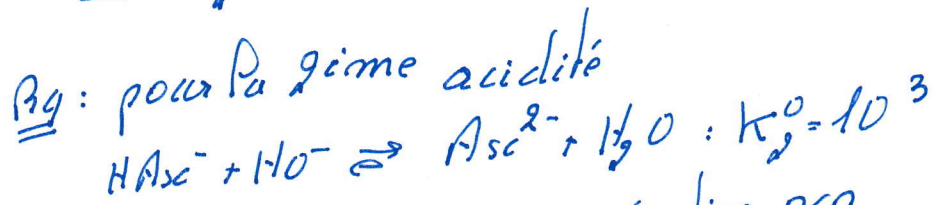 Rq : pour la 2ième acidité
HAsc⁻ + HO⁻ ⇌ Asc²⁻ + H₂O : K₂⁰ = 10³